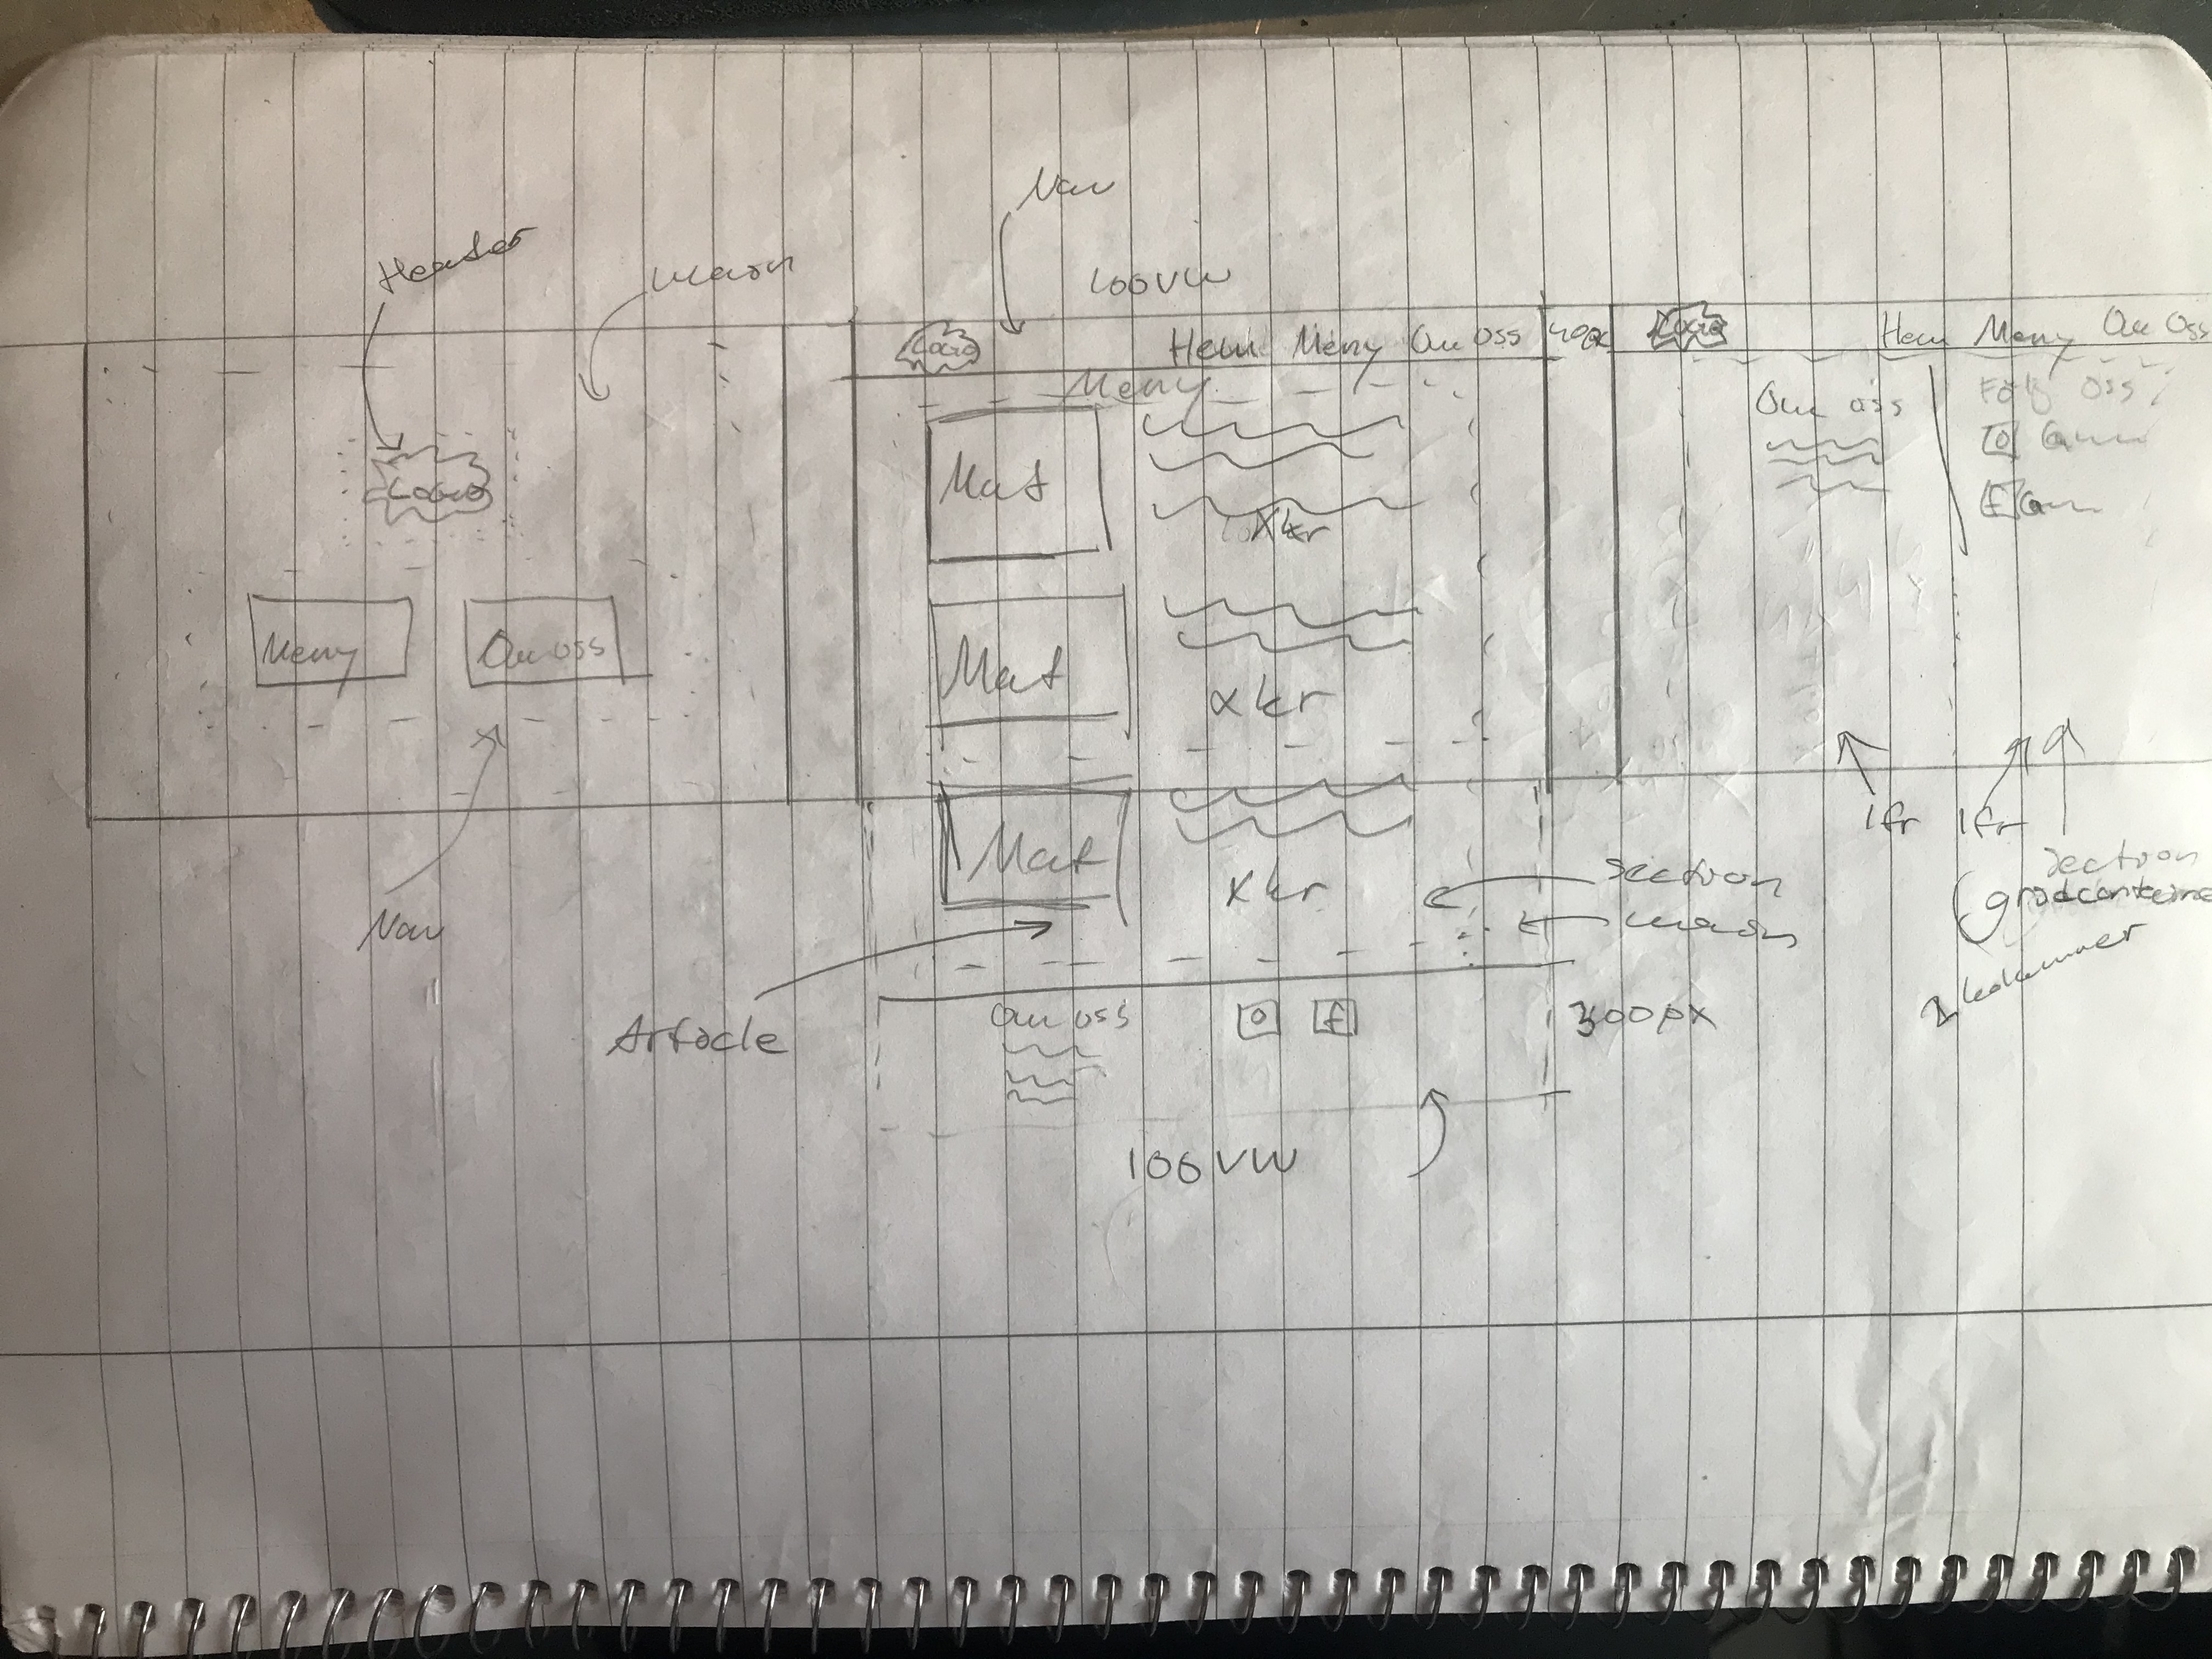 Header
main
Logo
Meny
Om oss
Nav
Nav
100VW
Logo
Hem Meny Om oss
Meny
Mat
Xkr
Mat
xkr
Mat
xkr
section
main
Article
Om oss
f
300px
100VW
Logo
Hem Meny Om Oss
Om oss
Följ oss
f
1fr
1fr
section
(gridcontainer
2 kolumner